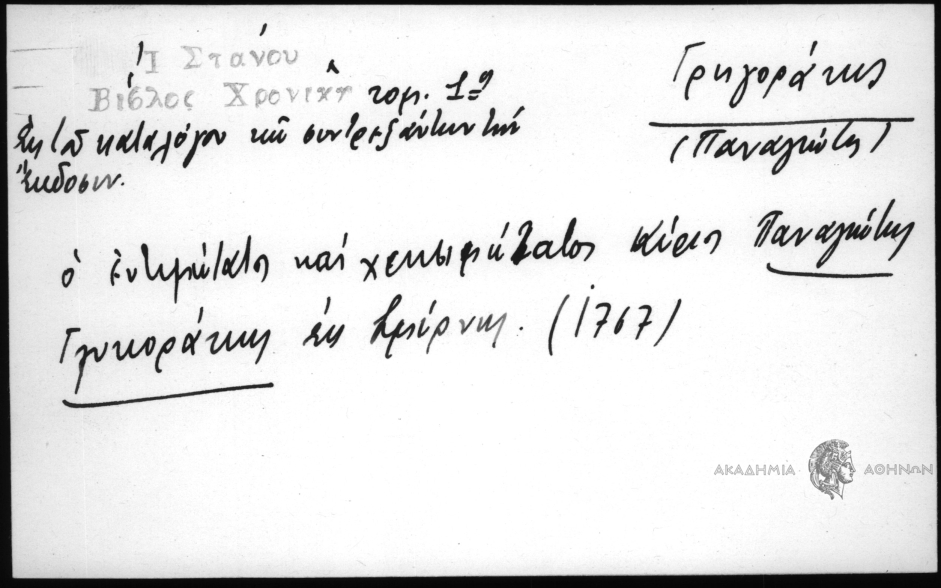 Ἰ Στάνου
Βίβλος Χρονικὴ τομ. 1ος
Ἐκ τοῦ καταλόγου τῶν συντρεξάντων τὴν
ἔκδοσιν.
Γρηγοράκης
(Παναγιώτης)
ὁ ἐντιμώτατος καὶ χρησιμώτατος κύριος Παναγιώτης
Γρηγοράκης ἐκ Σμύρνης. (1767)
ΑΚΑΔΗΜΙΑ ΑΘΗΝΩΝ